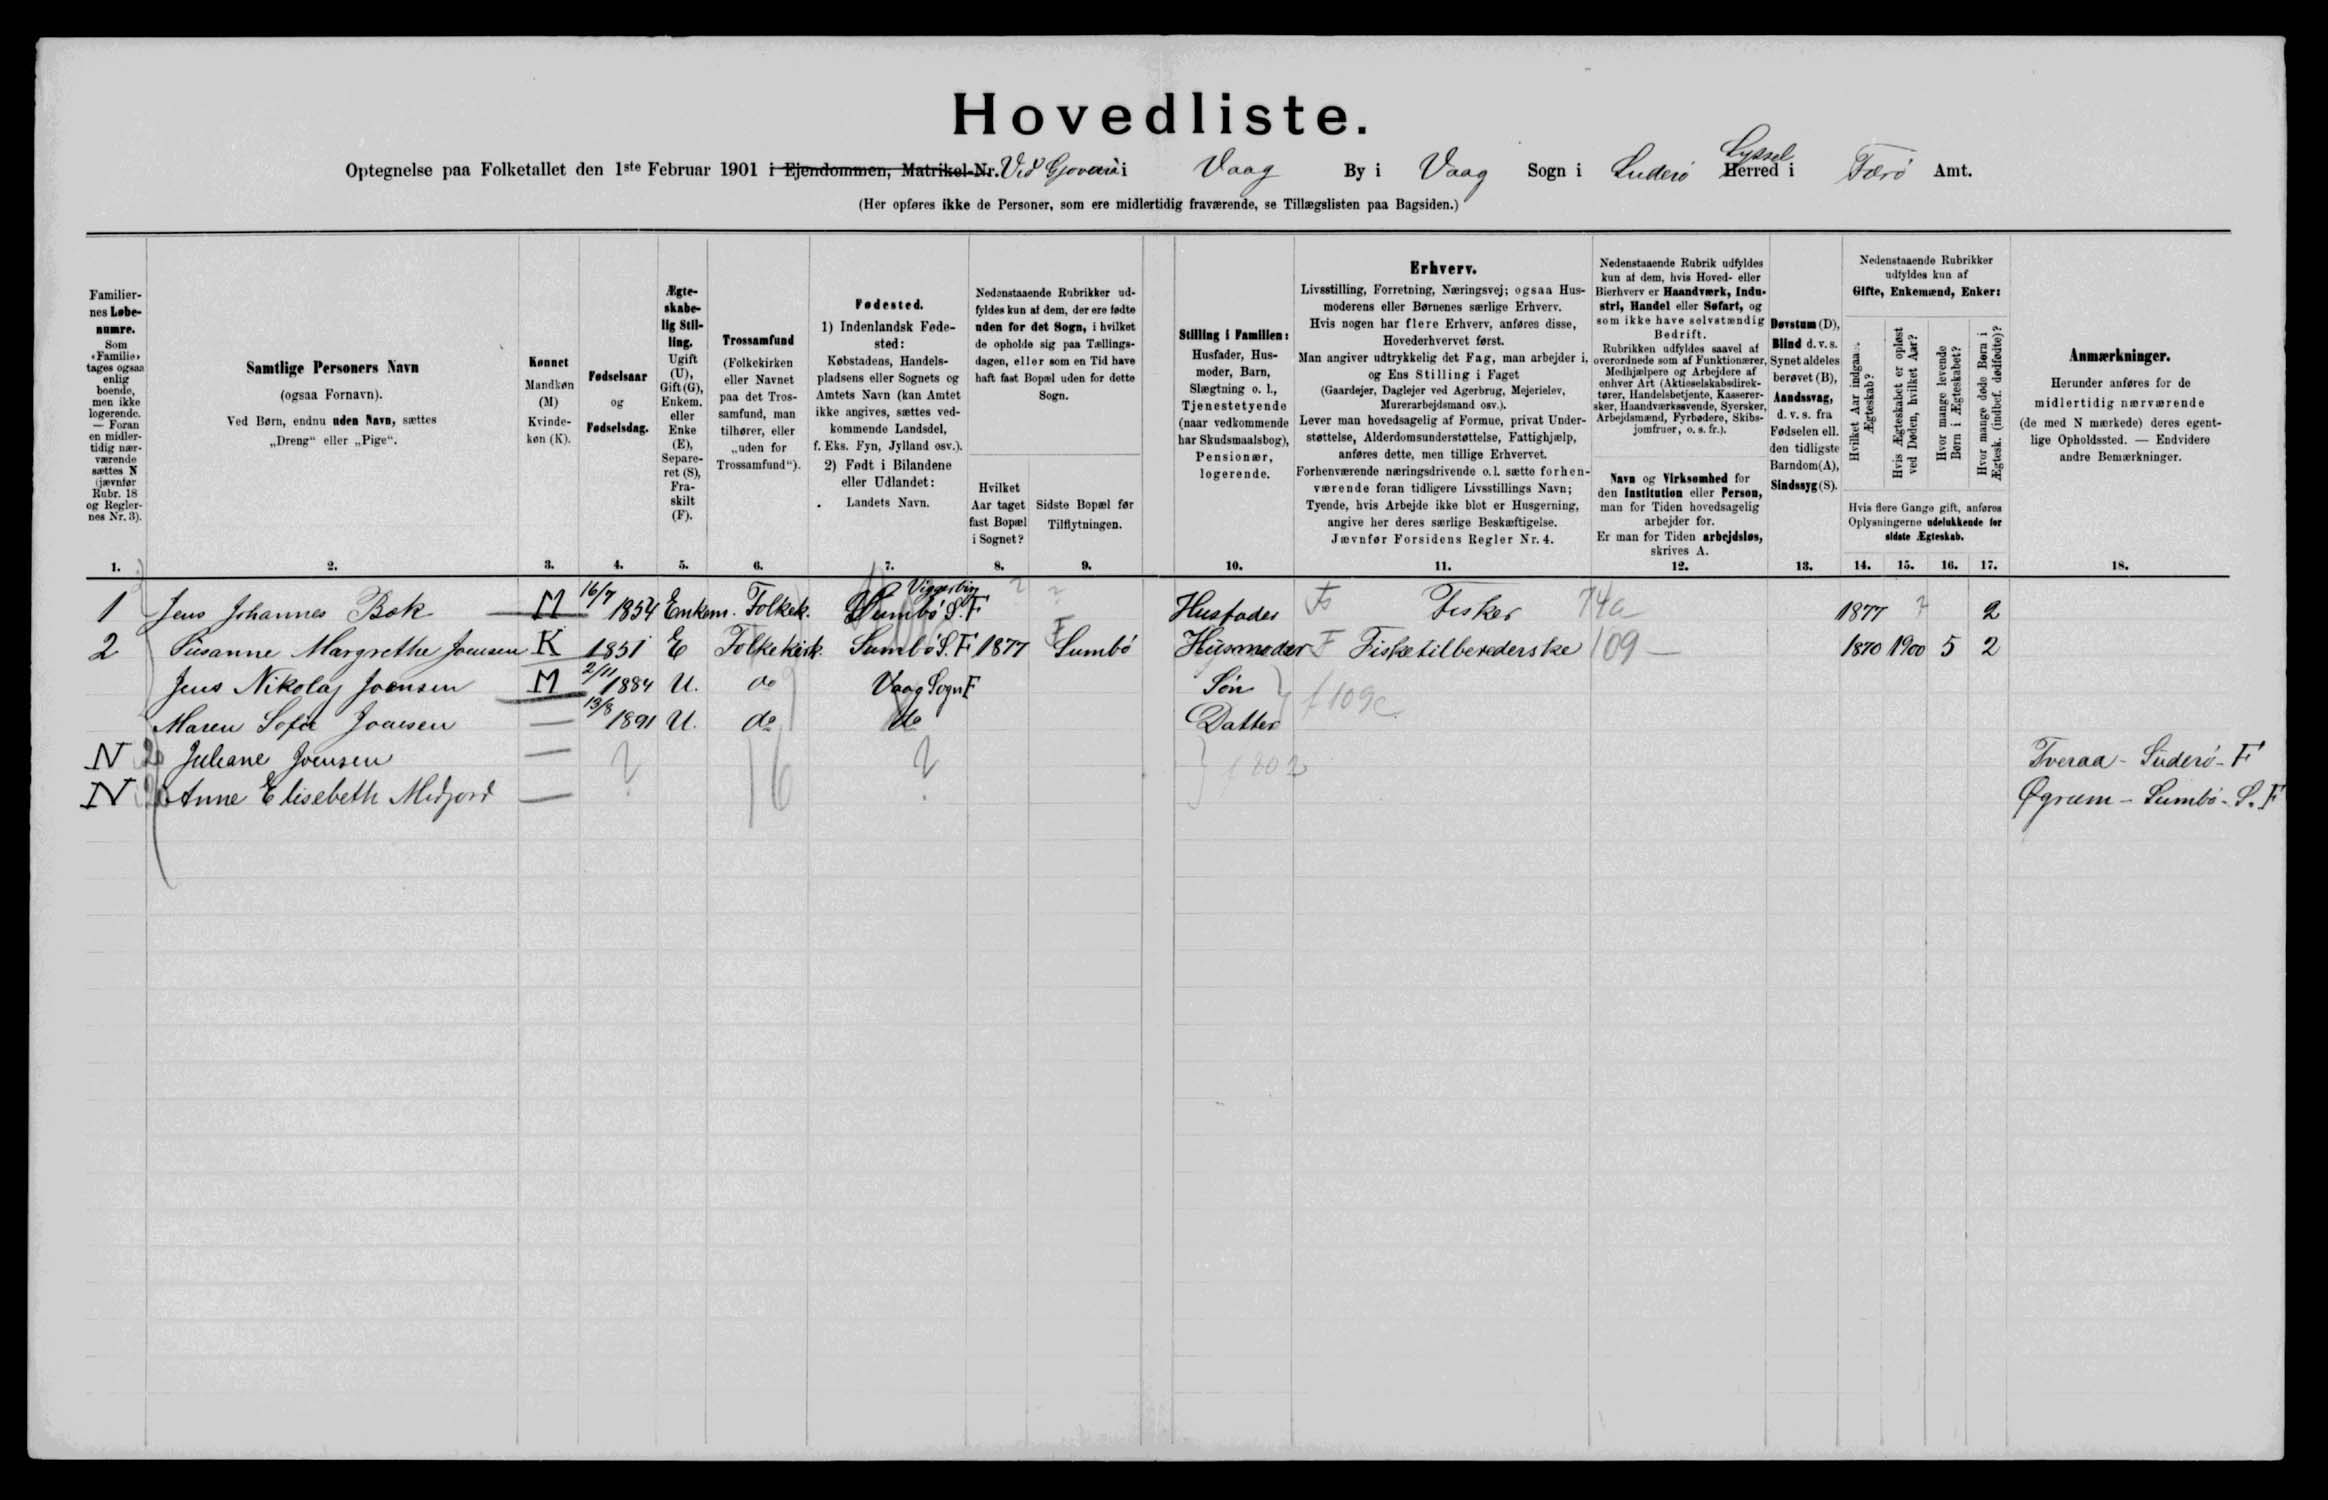 Hovedliste.
Optegnelse paa Folketallet den 1ste Februar 1901 i Ejendommen, Matrikel-Nr. Vid i Vaag By i Vaag Sogn i Suderø Herred Syssel i Færø Amt.
(Her opføres ikke de Personer, som ere midlertidig fraværende, se Tillægslisten paa Bagsiden.)
Familier-
nes Løbe-
numre.
Som
«Familie»
tages ogsaa
enlig
boende,
men ikke
logerende.
— Foran
en midler-
tidig nær-
værende
sættes N
(jævnfør
Rubr. 18
og Regler-
nes Nr. 3).
Samtlige Personers Navn
(ogsaa Fornavn).
Ved Børn, endnu uden Navn, sættes
„Dreng“ eller „Pige“.
Kønnet
Mandkøn
(M)
Kvinde-
køn (K).
Fødselsaar
og
Fødselsdag.
Ægte-
skabe-
lig Stil-
ling.
Ugift
(U),
Gift (G),
Enkem.
eller
Enke
(E),
Separe-
ret (S),
Fra-
skilt
(F).
Trossamfund
(Folkekirken
eller Navnet
paa det Tros-
samfund, man
tilhører, eller
„uden for
Trossamfund“).
Fødested.
1) Indenlandsk Føde-
sted:
Købstadens, Handels-
pladsens eller Sognets og
Amtets Navn (kan Amtet
ikke angives, sættes ved-
kommende Landsdel,
f. Eks. Fyn, Jylland osv.).
2) Født i Bilandene
eller Udlandet:
Landets Navn.
Nedenstaaende Rubrikker ud-
fyldes kun af dem, der ere fødte
uden for det Sogn, i hvilket
de opholde sig paa Tællings-
dagen, eller som en Tid have
haft fast Bopæl uden for dette
Sogn.
Hvilket
Aar taget
fast Bopæl
i Sognet?
Sidste Bopæl før
Tilflytningen.
Stilling i Familien:
Husfader, Hus-
moder, Barn,
Slægtning o. l.,
Tjenestetyende
(naar vedkommende
har Skudsmaalsbog),
Pensionær,
logerende.
Erhverv.
Livsstilling, Forretning, Næringsvej; ogsaa Hus-
moderens eller Børnenes særlige Erhverv.
Hvis nogen har flere Erhverv, anføres disse,
Hovederhvervet først.
Man angiver udtrykkelig det Fag, man arbejder i,
og Ens Stilling i Faget
(Gaardejer, Daglejer ved Agerbrug, Mejerielev,
Murerarbejdsmand osv.).
Lever man hovedsagelig af Formue, privat Under-
støttelse, Alderdomsunderstøttelse, Fattighjælp,
anføres dette, men tillige Erhvervet.
Forhenværende næringsdrivende o.l. sætte forhen-
værende foran tidligere Livsstillings Navn;
Tyende, hvis Arbejde ikke blot er Husgerning,
angive her deres særlige Beskæftigelse.
Jævnfør Forsidens Regler Nr. 4.
Nedenstaaende Rubrik udfyldes
kun af dem, hvis Hoved- eller
Bierhverv er Haandværk, Indu-
stri, Handel eller Søfart, og
som ikke have selvstændig
Bedrift.
Rubrikken udfyldes saavel af
overordnede som af Funktionærer,
Medhjælpere og Arbejdere af
enhver Art (Aktieselskabsdirek-
tører, Handelsbetjente, Kasserer-
sker, Haandværkssvende, Syersker,
Arbejdsmænd, Fyrbødere, Skibs-
jomfruer, o. s. fr.).
Navn og Virksomhed for
den Institution eller Person,
man for Tiden hovedsagelig
arbejder for.
Er man for Tiden arbejdsløs,
skrives A.
Døvstum (D),
Blind d. v. s.
Synet aldeles
berøvet (B),
Aandssvag,
d. v. s. fra
Fødselen ell.
den tidligste
Barndom (A),
Sindssyg (S).
Nedenstaaende Rubrikker
udfyldes kun af
Gifte, Enkemænd, Enker:
Hvilket Aar indgaaet
Ægteskab?
Hvis Ægteskabet er opløst
ved Døden, hvilket Aar?
Hvor mange levende
Børn i Ægteskabet?
Hvor mange døde Børn i
Ægtesk. (indbef. dødfødte)?
Hvis flere Gange gift, anføres
Oplysningerne udelukkende for
sidste Ægteskab.
Anmærkninger.
Herunder anføres for de
midlertidig nærværende
(de med N mærkede) deres egent-
lige Opholdssted. — Endvidere
andre Bemærkninger.
1. 2. 3. 4. 5. 6. 7. 8. 9. 10. 11. 12. 13. 14. 15. 16. 17. 18.
1 Jens Johannes Bæk M 16/7 1854 Enkem. Folkek. Sumbø S. F ? ? Husfader Fs Fisker 74a 1877 ? 2
2 Susanne Margrethe Joensen K 1851 E Folkekirk. Sumbø S. F 1877 F Sumbø Husmoder F Fisketilberederske 109 — 1870 1900 5 2
Jens Nikolaj Joensen M 2/11 1884 U. do Vaag Sogn F Søn f 109c
Maren Sofie Joensen — 13/8 1891 U. do do Datter
N Juliane Joensen — ? ? Tveraa - Suderø - F
N Anne Elisebeth Midjord — Øgrum - Sumbø - S. F